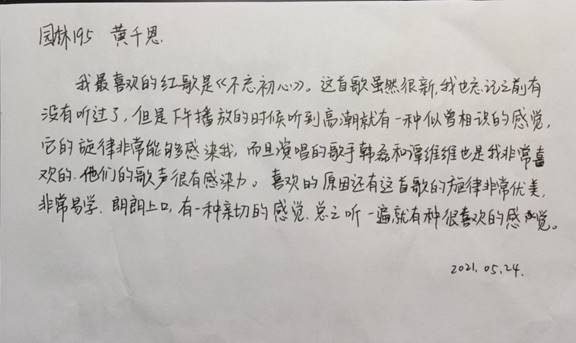 园林195 黄千恩
我最喜欢的红歌是《不忘初心》。这首歌虽然很新,我也忘记之前有
没有听过了,但是下午播放的时候听到高潮就有一种似曾相识的感觉,
它的旋律非常能够感染我,而且演唱的歌手韩磊和谭维维也是我非常喜
欢的,他们的歌声很有感染力。喜欢的原因还有这首歌的旋律非常优美,
非常易学,朗朗上口,有一种亲切的感觉,总之听一遍就有种很喜欢的感觉。
2021.05.24.